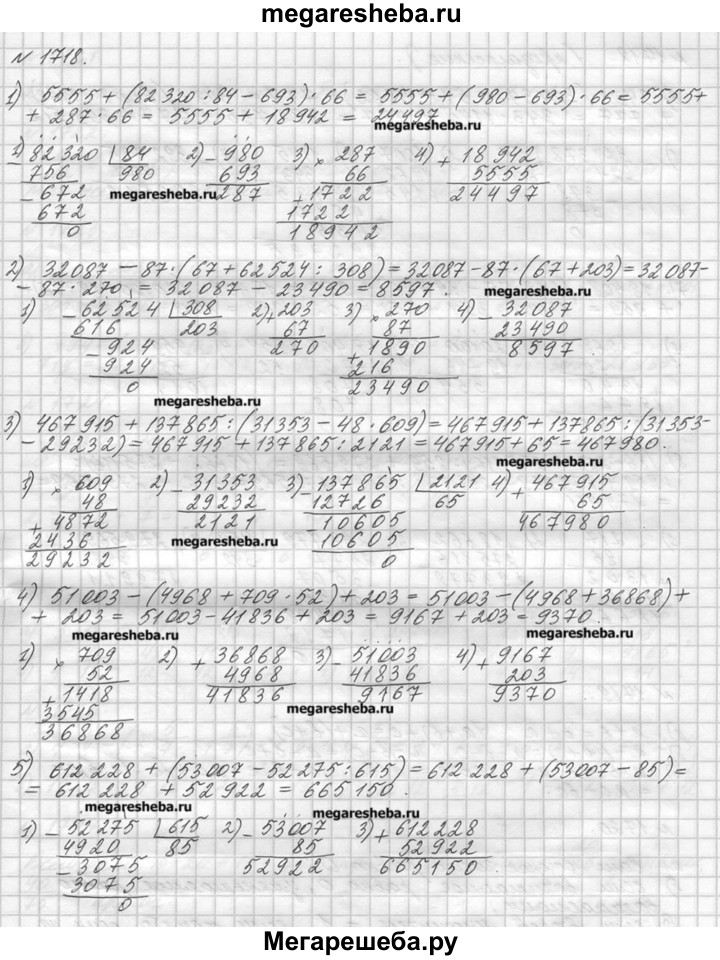 megaresheba.ru
№ 1718.
1) 5555 + (82 320 : 84 − 693) · 66 = 5555 + (980 − 693) · 66 = 5555 +
+ 287 · 66 = 5555 + 18 942 = 24 497.
megaresheba.ru
1) 82 320 | 84 2) − 980 3) × 287 4) + 18 942
756 980 693 66 5555
− 672 megaresheba.ru 287 + 1722 24497
672 1722
0 18942
2) 32087 − 87 · (67 + 62524 : 308) = 32087 − 87 · (67 + 203) = 32087 −
− 87 · 270 = 32087 − 23490 = 8597.
megaresheba.ru
1) − 62524 | 308 2) + 203 3) × 270 4) − 32087
616 203 67 87 23490
− 924 270 + 1890 8597
924 216
0 23490
megaresheba.ru
3) 467 915 + 137 865 : (31353 − 48 · 609) = 467 915 + 137 865 : (31353 −
− 29232) = 467 915 + 137 865 : 2121 = 467915 + 65 = 467 980.
megaresheba.ru
1) × 609 2) − 31353 3) − 137865 | 2121 4) + 467915
48 29232 12726 65 65
+ 4872 2121 − 10605 467980
2436 megaresheba.ru 10605
29232 0
4) 51003 − (4968 + 709 · 52) + 203 = 51003 − (4968 + 36868) +
+ 203 = 51003 − 41836 + 203 = 9167 + 203 = 9370.
megaresheba.ru megaresheba.ru
1) × 709 2) + 36868 3) − 51003 4) + 9167
52 4968 41836 203
+ 1418 41836 9167 9370
3545 megaresheba.ru
36868
5) 612 228 + (53007 − 52275 : 615) = 612 228 + (53007 − 85) =
= 612 228 + 52 922 = 665 150.
megaresheba.ru megaresheba.ru
1) − 52275 | 615 2) − 53007 3) + 612228
4920 85 85 52922
− 3075 52922 665150
3075
0
Мегарешеба.ру